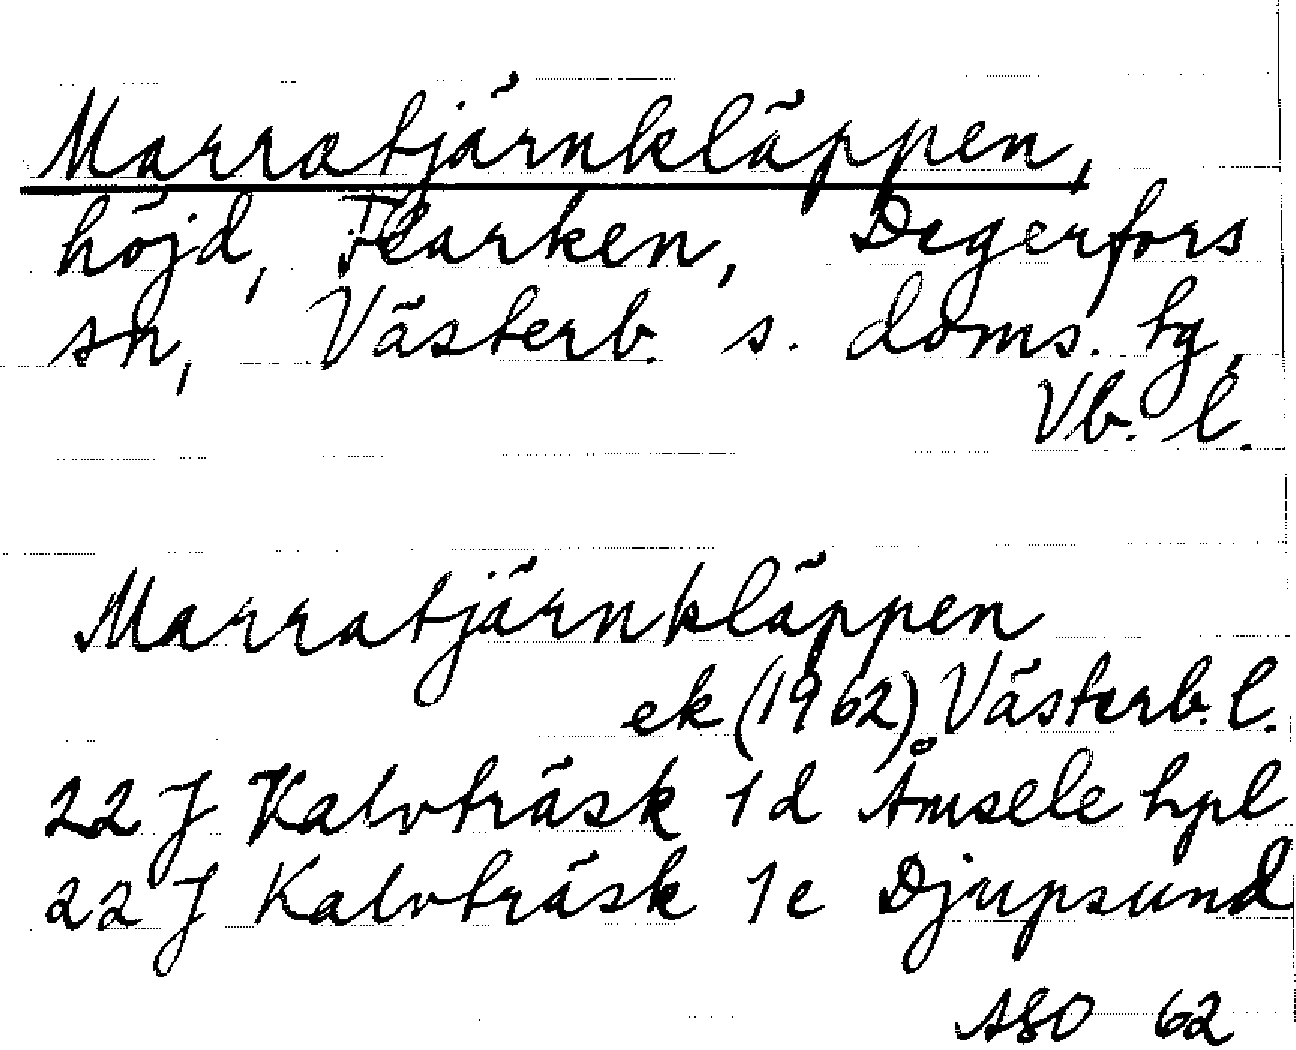 Marratjärnkläppen,
höjd, Flarken, Degerfors
sn, Västerb. s. doms. tg,
Vb. l.
Marratjärnkläppen
ek (1962) Västerb. l.
22 J Kalvträsk 1d Åmsele hpl
22 J Kalvträsk 1e Djupsund
62